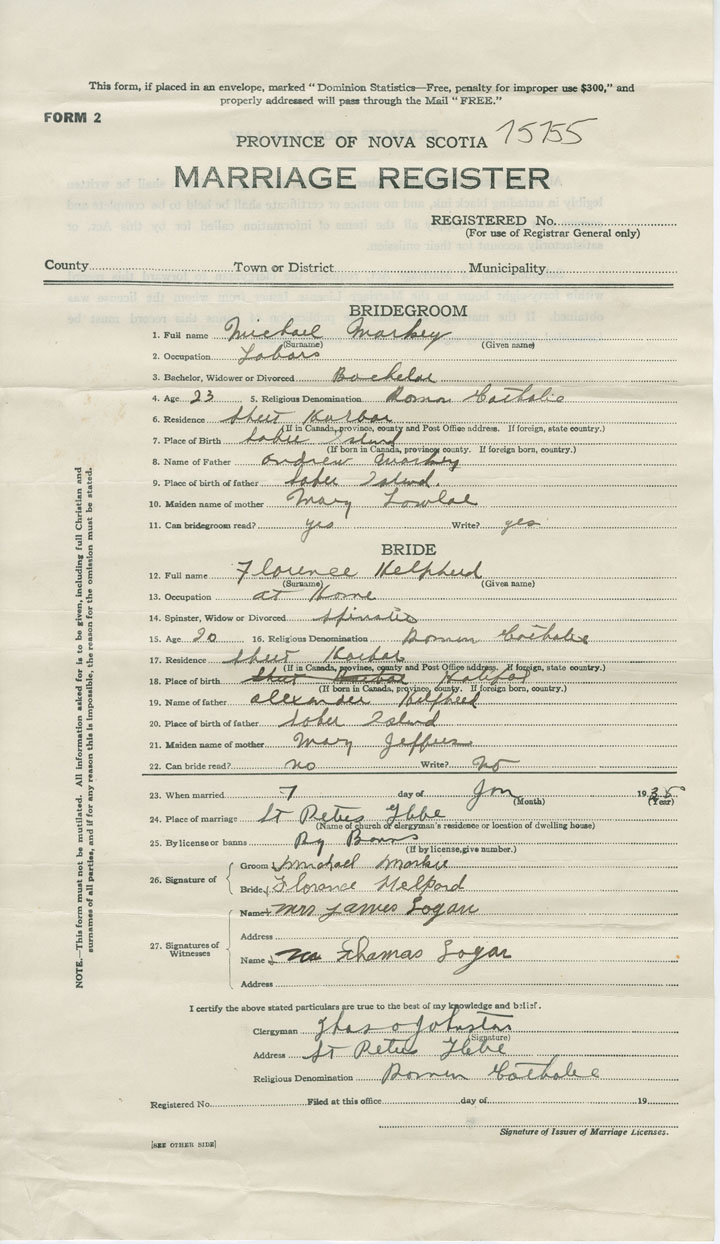 This form, if placed in an envelope, marked "Dominion Statistics—Free, penalty for improper use $300," and
properly addressed will pass through the Mail "FREE."
FORM 2
PROVINCE OF NOVA SCOTIA 15755
MARRIAGE REGISTER
REGISTERED No.
(For use of Registrar General only)
County Town or District Municipality
BRIDEGROOM
1. Full name Michael Markey
(Surname) (Given name)
2. Occupation Labors
3. Bachelor, Widower or Divorced Bachelor
4. Age 23 5. Religious Denomination Roman Catholic
6. Residence Sheet Harbor
(If in Canada, province, county and Post Office address. If foreign, state country.)
7. Place of Birth Sober Island
(If born in Canada, province county. If foreign born, country.)
8. Name of Father Andrew Markey
9. Place of birth of father Sober Island.
10. Maiden name of mother Mary
11. Can bridegroom read? yes Write? yes
BRIDE
12. Full name Florence Helpherd
(Surname) (Given name)
13. Occupation at Home
14. Spinster, Widow or Divorced Spinster
15. Age 20 16. Religious Denomination Roman Catholic
17. Residence Sheet Harbor
(If in Canada, province, county and Post Office address. If foreign, state country.)
18. Place of birth Sheet Harbor Halifax
(If born in Canada, province, county. If foreign born, country.)
19. Name of father Alexander Helpherd
20. Place of birth of father Sober Island
21. Maiden name of mother Mary
22. Can bride read? no Write? No
23. When married 7 day of Jan 1935
(Month) (Year)
24. Place of marriage St Peters
(Name of church or clergyman's residence or location of dwelling house)
25. By license or banns By Banns
(If by license, give number.)
26. Signature of Groom Michael Markie
Bride Florence Helpard
27. Signatures of Witnesses Name Mrs James Logan
Address
Name Thomas Logan
Address
I certify the above stated particulars are true to the best of my knowledge and belief.
Clergyman Thas o Johnston
(Signature)
Address St Peters
Religious Denomination Roman Catholic
Registered No. Filed at this office day of 19
Signature of Issuer of Marriage Licenses.
[SEE OTHER SIDE]
NOTE.—This form must not be mutilated. All information asked for is to be given, including full Christian and
surnames of all parties, and if for any reason this is impossible, the reason for the omission must be stated.